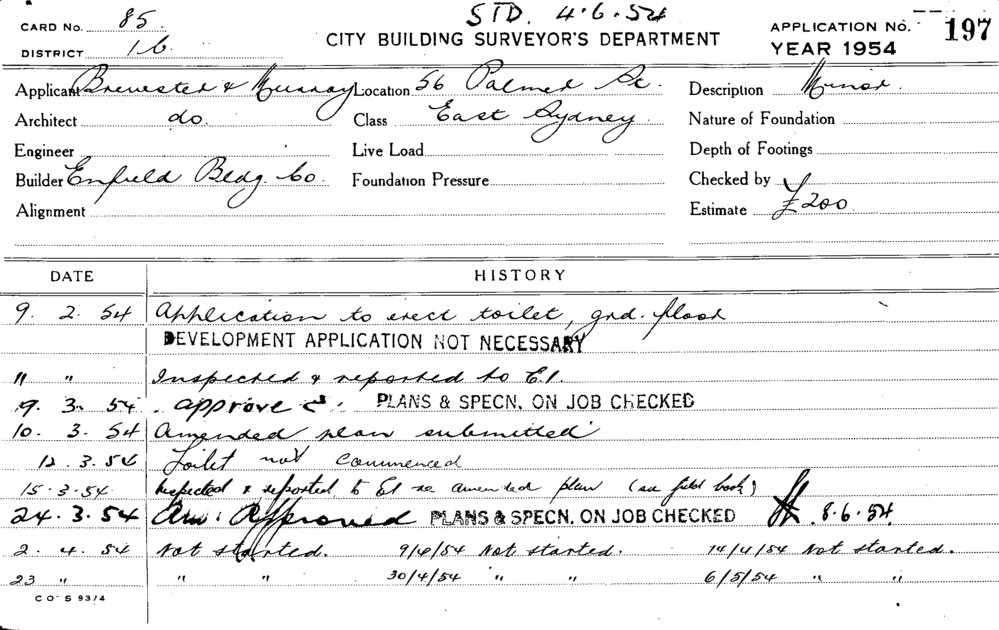 CARD No. 85. STD. 4.6.54 APPLICATION No. 197
DISTRICT 16. CITY BUILDING SURVEYOR'S DEPARTMENT YEAR 1954
Applicant Brewester & Murray Location 56 Palmer St. Description Minor.
Architect do. Class East Sydney. Nature of Foundation
Engineer Live Load Depth of Footings
Builder Enfield Bldg. Co. Foundation Pressure Checked by
Alignment Estimate £200
DATE HISTORY
9. 2. 54 Application to erect toilet, grd. floor
DEVELOPMENT APPLICATION NOT NECESSARY
" " Inspected & reported to E.I.
9. 3. 54 approved. PLANS & SPECN. ON JOB CHECKED
10. 3. 54 Amended plan submitted
12.3.54 Toilet not commenced
15.3.54 Inspected & reported to EI re amended plan (see field book)
24.3.54 Am: Approved PLANS & SPECN. ON JOB CHECKED 8.6.54.
2. 4. 54 Not started. 9/4/54 Not started. 14/4/54 Not started.
23 " " " 30/4/54 " " 6/5/54 " "
CO-S 9374